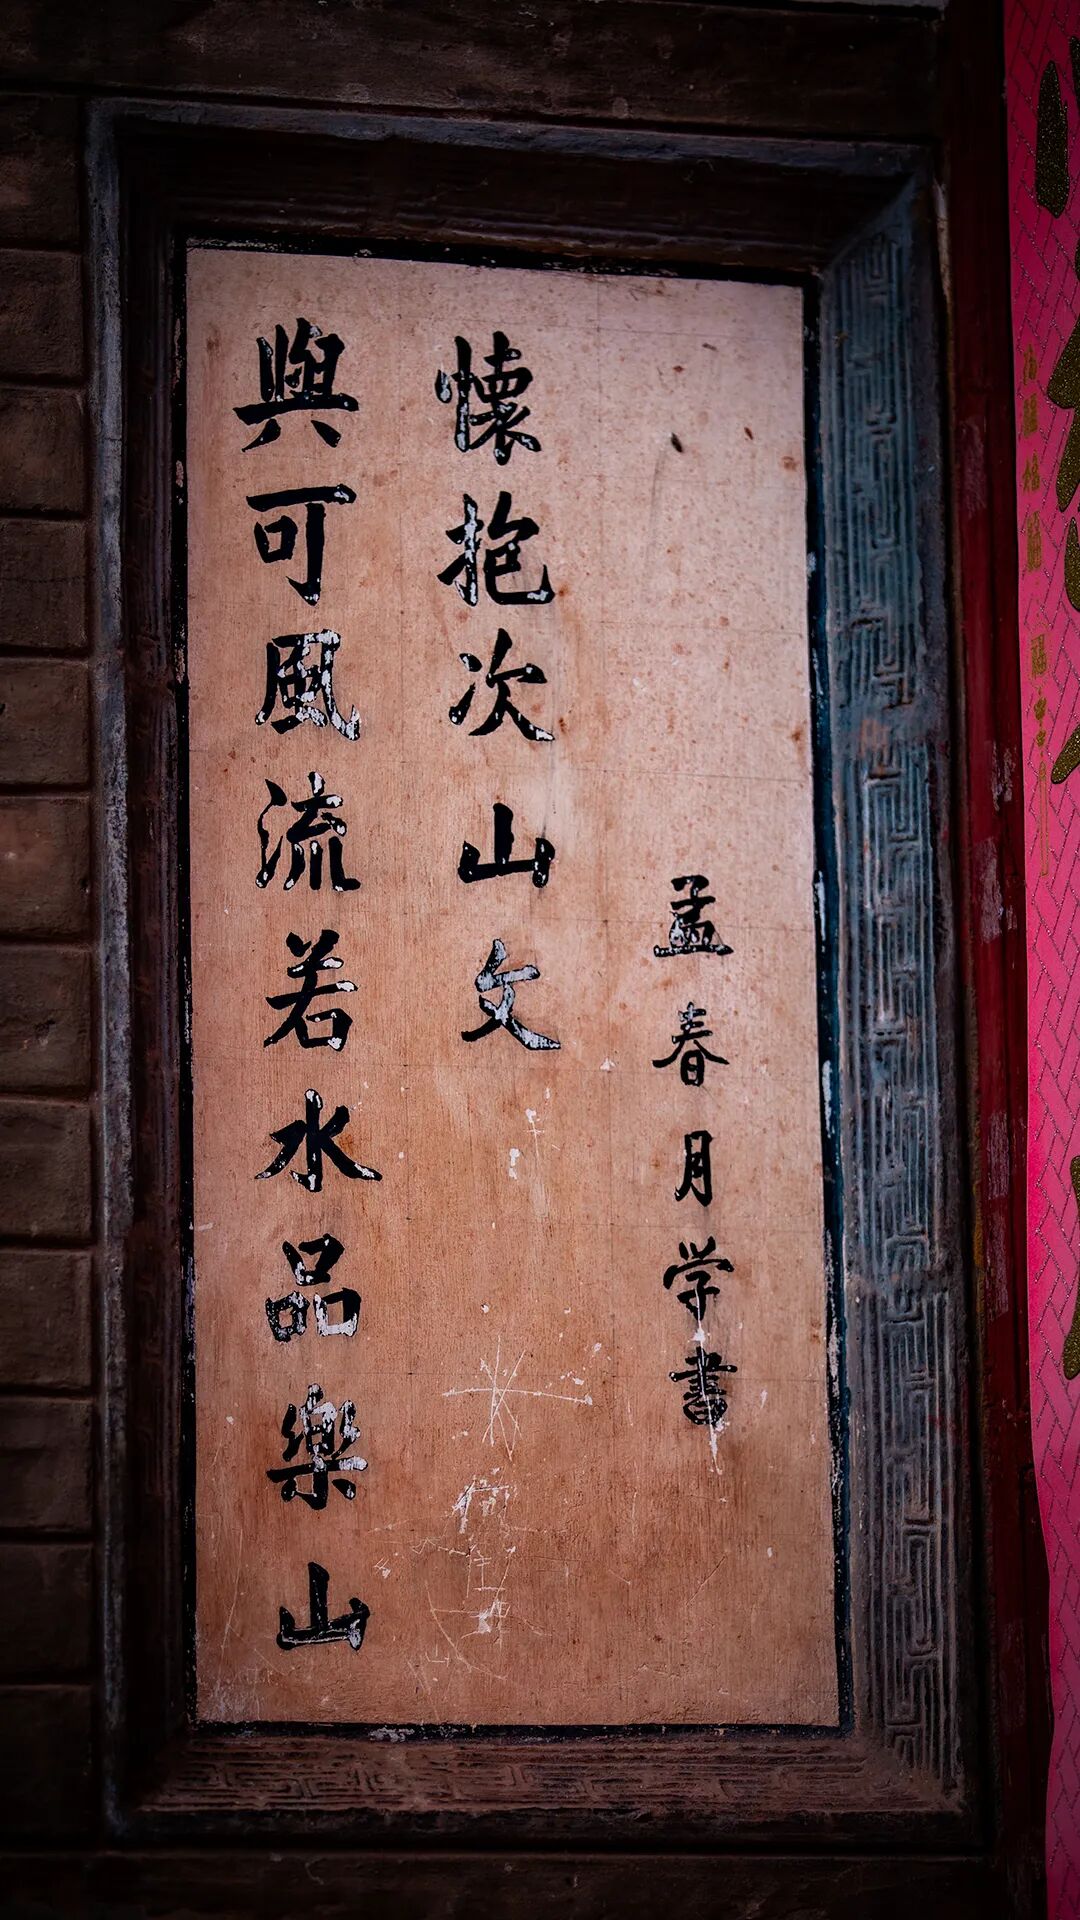 與可風流若水品樂山
懷抱次山文
孟春月学書